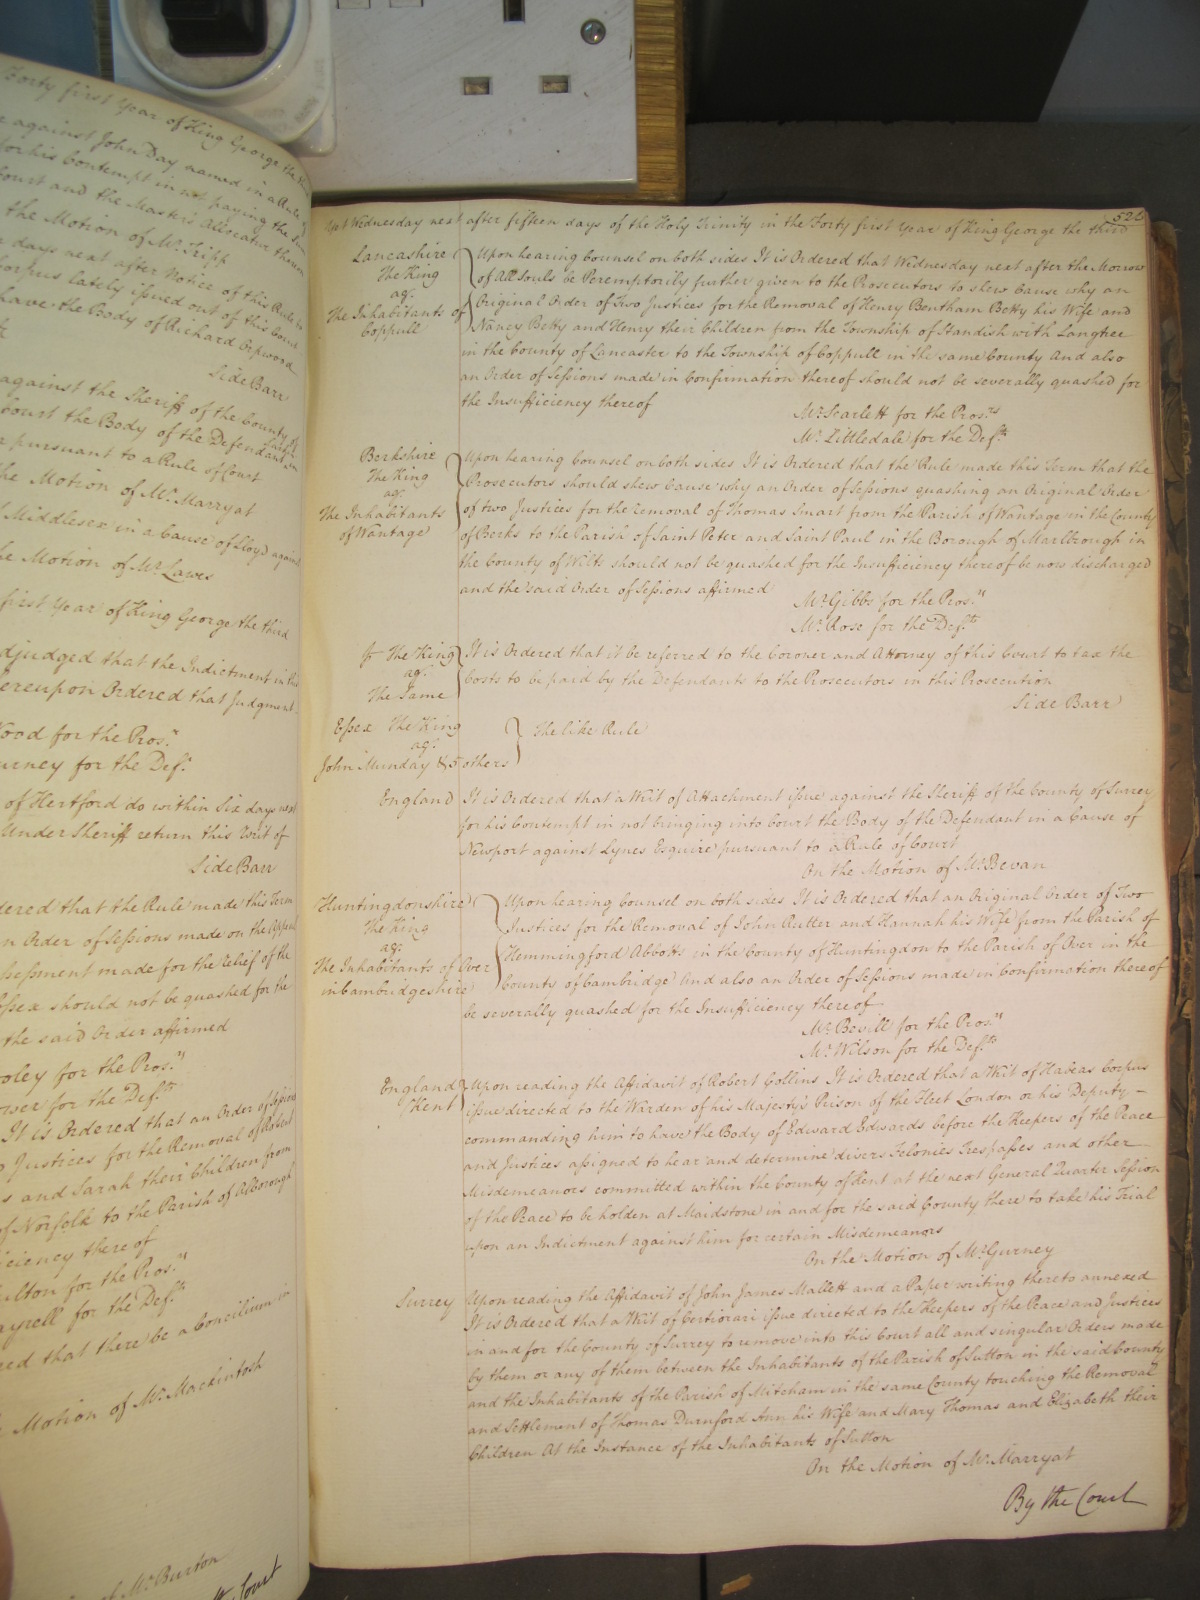 Forty first Year of King George the third
against John Day named in a Rule
for his Contempt in not paying the Sum
Court and the Master's Allocatur thereon
the Motion of Mr. Tripp
days next after Notice of this Rule
Corpus lately issued out of this Court
have the Body of Richard Orpwood
Side Barr
against the Sheriff of the County
Court the Body of the Defendant in
pursuant to a Rule of Court
the Motion of Mr. Marryat
Middlesex in a Cause of Lloyd against
the Motion of Mr. Lawes
first Year of King George the third
adjudged that the Indictment in this
hereupon Ordered that Judgment
Wood for the Pros.rs
Gurney for the Def.t
of Hertford do within Six days next
Under Sheriff return this Writ of
Side Barr
Ordered that the Rule made this Term
an Order of Sessions made on the Appeal
assessment made for the relief of the
Essex should not be quashed for the
the said Order affirmed
for the Pros.rs
for the Def.ts
It is Ordered that an Order of Sessions
Justices for the Removal of Robert
and Sarah their Children from
of Norfolk to the Parish of Alborough
insufficiency thereof
for the Pros.rs
for the Def.ts
that there be a Concilium in
Motion of Mr. Mackintosh
of Mr. Burton
Court
526
Yet Wednesday next after fifteen days of the Holy Trinity in the Forty first Year of King George the third
Lancashire Upon hearing Counsel on both sides It is Ordered that Wednesday next after the Morrow
The King of All Souls be Peremptorily further given to the Prosecutors to shew Cause why an
ag.t Original Order of Two Justices for the Removal of Henry Bentham Betty his Wife and
The Inhabitants of Nancy Betty and Henry their Children from the Township of Standish with Langtree
Coppull in the County of Lancaster to the Township of Coppull in the same County And also
an Order of Sessions made in Confirmation thereof should not be severally quashed for
the Insufficiency thereof
Mr. Scarlett for the Pros.rs
Mr. Littledale for the Def.ts
Berkshire Upon hearing Counsel on both sides It is Ordered that the Rule made this Term that the
The King Prosecutors should shew Cause why an Order of Sessions quashing an Original Order
ag.t
The Inhabitants of two Justices for the removal of Thomas Smart from the Parish of Wantage in the County
of Wantage of Berks to the Parish of Saint Peter and Saint Paul in the Borough of Marlbrough in
the County of Wilts should not be quashed for the Insufficiency thereof be now discharged
and the said Order of Sessions affirmed
Mr. Gibbs for the Pros.rs
Mr. Rose for the Def.ts
The King It is Ordered that it be referred to the Coroner and Attorney of this Court to tax the
ag.t
The Same Costs to be paid by the Defendants to the Prosecutors in this Prosecution
Side Barr
Essex The King The like Rule
ag.t
John Munday & 5 others
England It is Ordered that a Writ of Attachment issue against the Sheriff of the County of Surrey
for his Contempt in not bringing into Court the Body of the Defendant in a Cause of
Newport against Lynes Esquire pursuant to a Rule of Court
On the Motion of Mr. Bevan
Huntingdonshire Upon hearing Counsel on both sides It is Ordered that an Original Order of Two
The King Justices for the Removal of John Rutter and Hannah his Wife from the Parish of
ag.t Hemmingford Abbotts in the County of Huntingdon to the Parish of Over in the
The Inhabitants of Over County of Cambridge And also an Order of Sessions made in Confirmation thereof
in Cambridgeshire be severally quashed for the Insufficiency thereof
Mr. Bevill for the Pros.rs
Mr. Wilson for the Def.ts
England Upon reading the Affidavit of Robert Collins It is Ordered that a Writ of Habeas Corpus
Kent issue directed to the Warden of his Majesty's Prison of the Fleet London or his Deputy
commanding him to have the Body of Edward Edwards before the Keepers of the Peace
and Justices assigned to hear and determine divers Felonies Trespasses and other
Misdemeanors committed within the County of Kent at the next General Quarter Session
of the Peace to be holden at Maidstone in and for the said County there to take his Trial
upon an Indictment against him for certain Misdemeanors
On the Motion of Mr. Gurney
Surrey Upon reading the Affidavit of John James Mallett and a Paper writing thereto annexed
It is Ordered that a Writ of Certiorari issue directed to the Keepers of the Peace and Justices
in and for the County of Surrey to remove into this Court all and singular Orders made
by them or any of them between the Inhabitants of the Parish of Sutton in the said County
and the Inhabitants of the Parish of Mitcham in the same County touching the Removal
and Settlement of Thomas Durnford Ann his Wife and Mary Thomas and Elizabeth their
Children At the Instance of the Inhabitants of Sutton
On the Motion of Mr. Marryat
By the Court